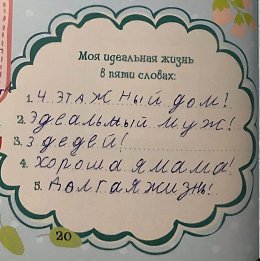 Моя идеальная жизнь
в пяти словах:
1. 4 этажный дом!
2. Эдеальный муж!
3. 3 дедей!
4. хорошая мама!
5. Долгая жизнь!
20